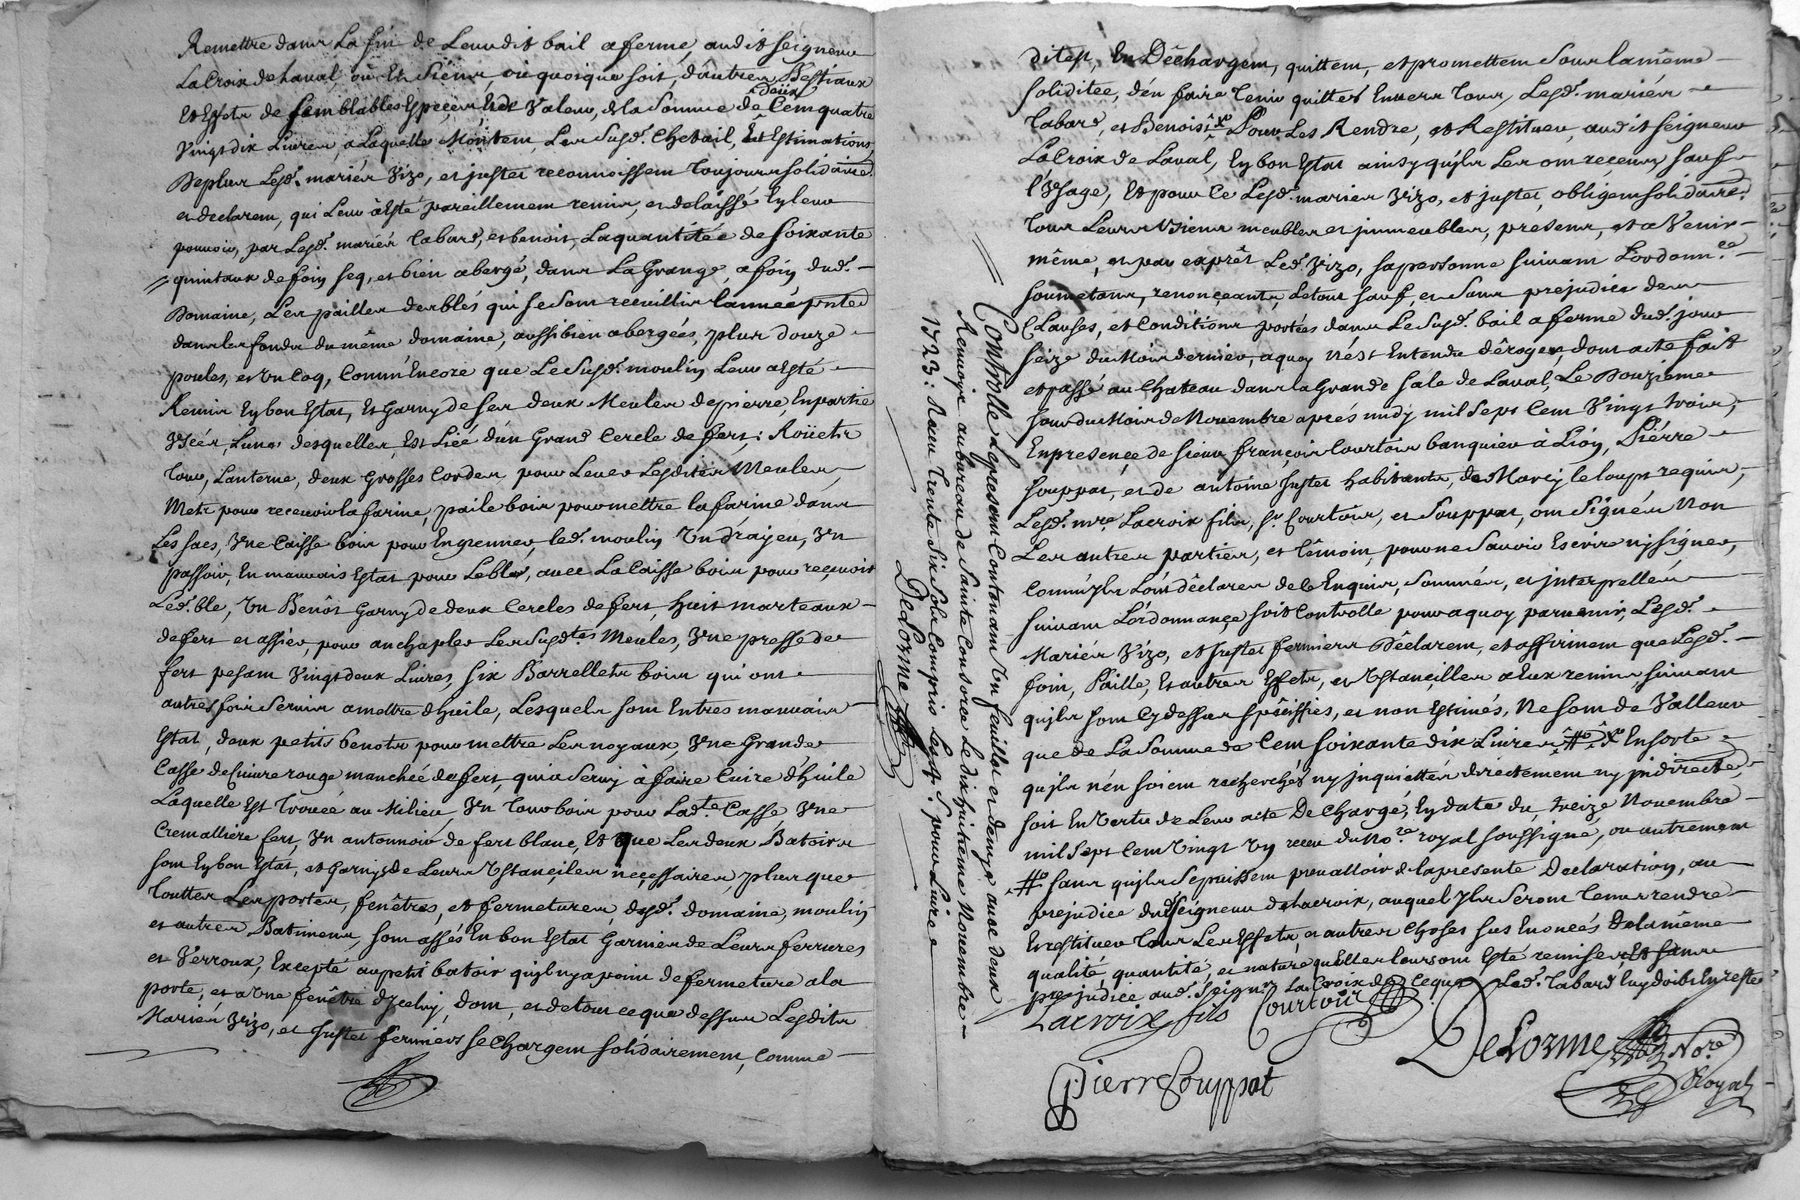 Remettre dans La fin de Leurdit bail a ferme, audit seigneur
LaCroix de Laval, où Es Siens, ou quoique soit, d'autres Bestiaux
Et Effets de semblables Especes Et de Valeur, de la Somme de deux Cent quatre
Vingt dix Livres, a Laquelle Montent Les Susd. Chetail, Et Estimations
De plus Lesd. mariés Vizo, et justet reconnoissent Toujours solidaire.
et declarent, qui Leur à Esté pareillement remis, et delaissé En leur
pouvoir, par Lesd. mariés Cabard, et benoit, La quantitée de soixante
quintaux de foin seq, et bien abergé, dans La Grange, a foin dud.
Domaine, Les pailles des blés qui se sont recuillis l'année pnte
dans les fonds du même domaine, aussi bien abergées, plus douze
poules, et Un Coq, Comm'Encore que Le Susd. moulin Leur a Esté
Remis En bon Estat, Et Garny de ses deux Meules de pierre, En partie
Usées, L'une desquelles, Est Liée d'un Grand Cercle de fert; Roüets
Tour, Lanterne, deux Grosses Cordes, pour Lever Lesdites Meules
Mets pour recevoir la farine, paile bois pour mettre la farine dans
Les sacs, Une Caisse bois pour Engrenner, led. moulin Un drajeu, Un
passoir, En mauvais Estat pour Le bled, avec La Caisse bois pour reçevoir
Led. ble, Un Benôt Garny de deux Cercles de fert, huit marteaux
de fert et assier, pour anchapler Les Susd.tes Meules, Une presse de
fert pesant Vingt deux Livres, six Barrellets bois qui ont
autresfois Servis a mettre d'huile, Lesquels sont Entres mauvais
Estat, deux petits benots pour mettre Les noyaux, Une Grande
Casse de Cuivre rouge manchée de fert, qui a Servy à faire Cuire d'huile
Laquelle Est Trouée au Milieu, Un Tour bois pour Lad.te Casse Une
Cremalliere fert, Un antonnoir de fert blanc, Et que Les deux Batoirs
sont En bon Estat, et Garnis de Leurs Ustanciles neçessaires, plus que
Touttes Les portes, fenêtres, et fermetures desd. domaine, moulin
et autres Batiments, sont assés En bon Estat Garnies de Leurs ferrures
et Verroux, Excepté au petit batoir qu'il n'y a point de fermeture a la
porte, et a Une fenêtre d'Icelui, dont, et de tout ce que dessus Lesdits
Mariés Vizo, et Justet fermiers se Chargent solidairement, Comme
ditest, En Dêchargent, quittent, et promettent Sous la même
soliditée, d'én faire Tenir quittes Envers Tous, Lesd. mariés
Cabard, et Benoist Pour Les Rendre, et Restituer, audit seigneur
LaCroix de Laval, En bon Estat ainsy qu'ils Les ont reçeus, sauf
l'Usage, Et pour Ce Lesd. mariés Vizo, et justet, obligent solidaire.
Tous Leurs Biens meubles et jmmeubles, presens, et a Venir
même, et par exprêt Led. Vizo, sa personne suivant L'ordonn.ce
soumetans, renonçeants, Le tout sauf, et Sans prejudice des
Clauses, et Conditions portées dans Le Susd. bail a ferme dud. jour
seize du Mois dernier, a quoy n'ést Entendu dêroger, dont acte fait
et passé au Chateau dans la Grande Sale de Laval, Le Douzieme
jour du Mois de Novembre aprés midy mil Sept Cent Vingt trois,
En presençe de Sieur françois Courtois banquier à Lion, Piérre
souppat, et de antoine Justet habitants, de Marcy le loup requis,
Lesd. mre Lacroix fils, Sr Courtois, et Souppat, ont Signés Non
Les autres parties, et têmoin, pour ne Savoir Escrire ny signer,
Comm'Ils L'ont dêclarer de ce Enquis, Sommés, et jnterpellés
suivant L'ordonnançe soit Controlle pour a quoy parvenir, Lesd.
Mariés Vizo, et Justet fermiers Dêclarent, et affirment que Lesd.
foin, Paille, Et autres Effets, et Ustançilles a Eux remis, suivant
qu'ils sont Cy dessus spêciffies, et non Estimés, Ne sont de Valleur
que de La Somme de Cent soixante dix Livres # Ensorte
qu'ils n'én soient recherchés ny jnquiettés directement ny jndirecte.
soit En Vertu de Leur acte De Chargé, En date du, treize Novembre
mil Sept Cent Vingt Un receu du No.re royal soussigné, ou autrement
# sans qu'ils se puissent prevalloir de la presente Declaration, au
prejudice dud. Seigneur de Lacroix, auquel Ils Seront Tenus rendre
Et restituer Tous Les Effets, et autres Choses sus Enonçés De la même
qualité, quantité, et nature qu'Elles leurs ont Esté remises, Et sans
prejudice aud. Seigneur LaCroix de Ce que Led. Cabard luy doibt En reste
Lacroix fils Courtois
DeLorme No.re
Royal
PierreSouppat
Controlle Le present Contenant Un feuillet et demye avec deux
Renvoyes au bureau de Sainte Consorce Le dix huitieme Novembre
1723: Receu Trente Six Sols Compris Les 4 s. pour Livre
DeLorme